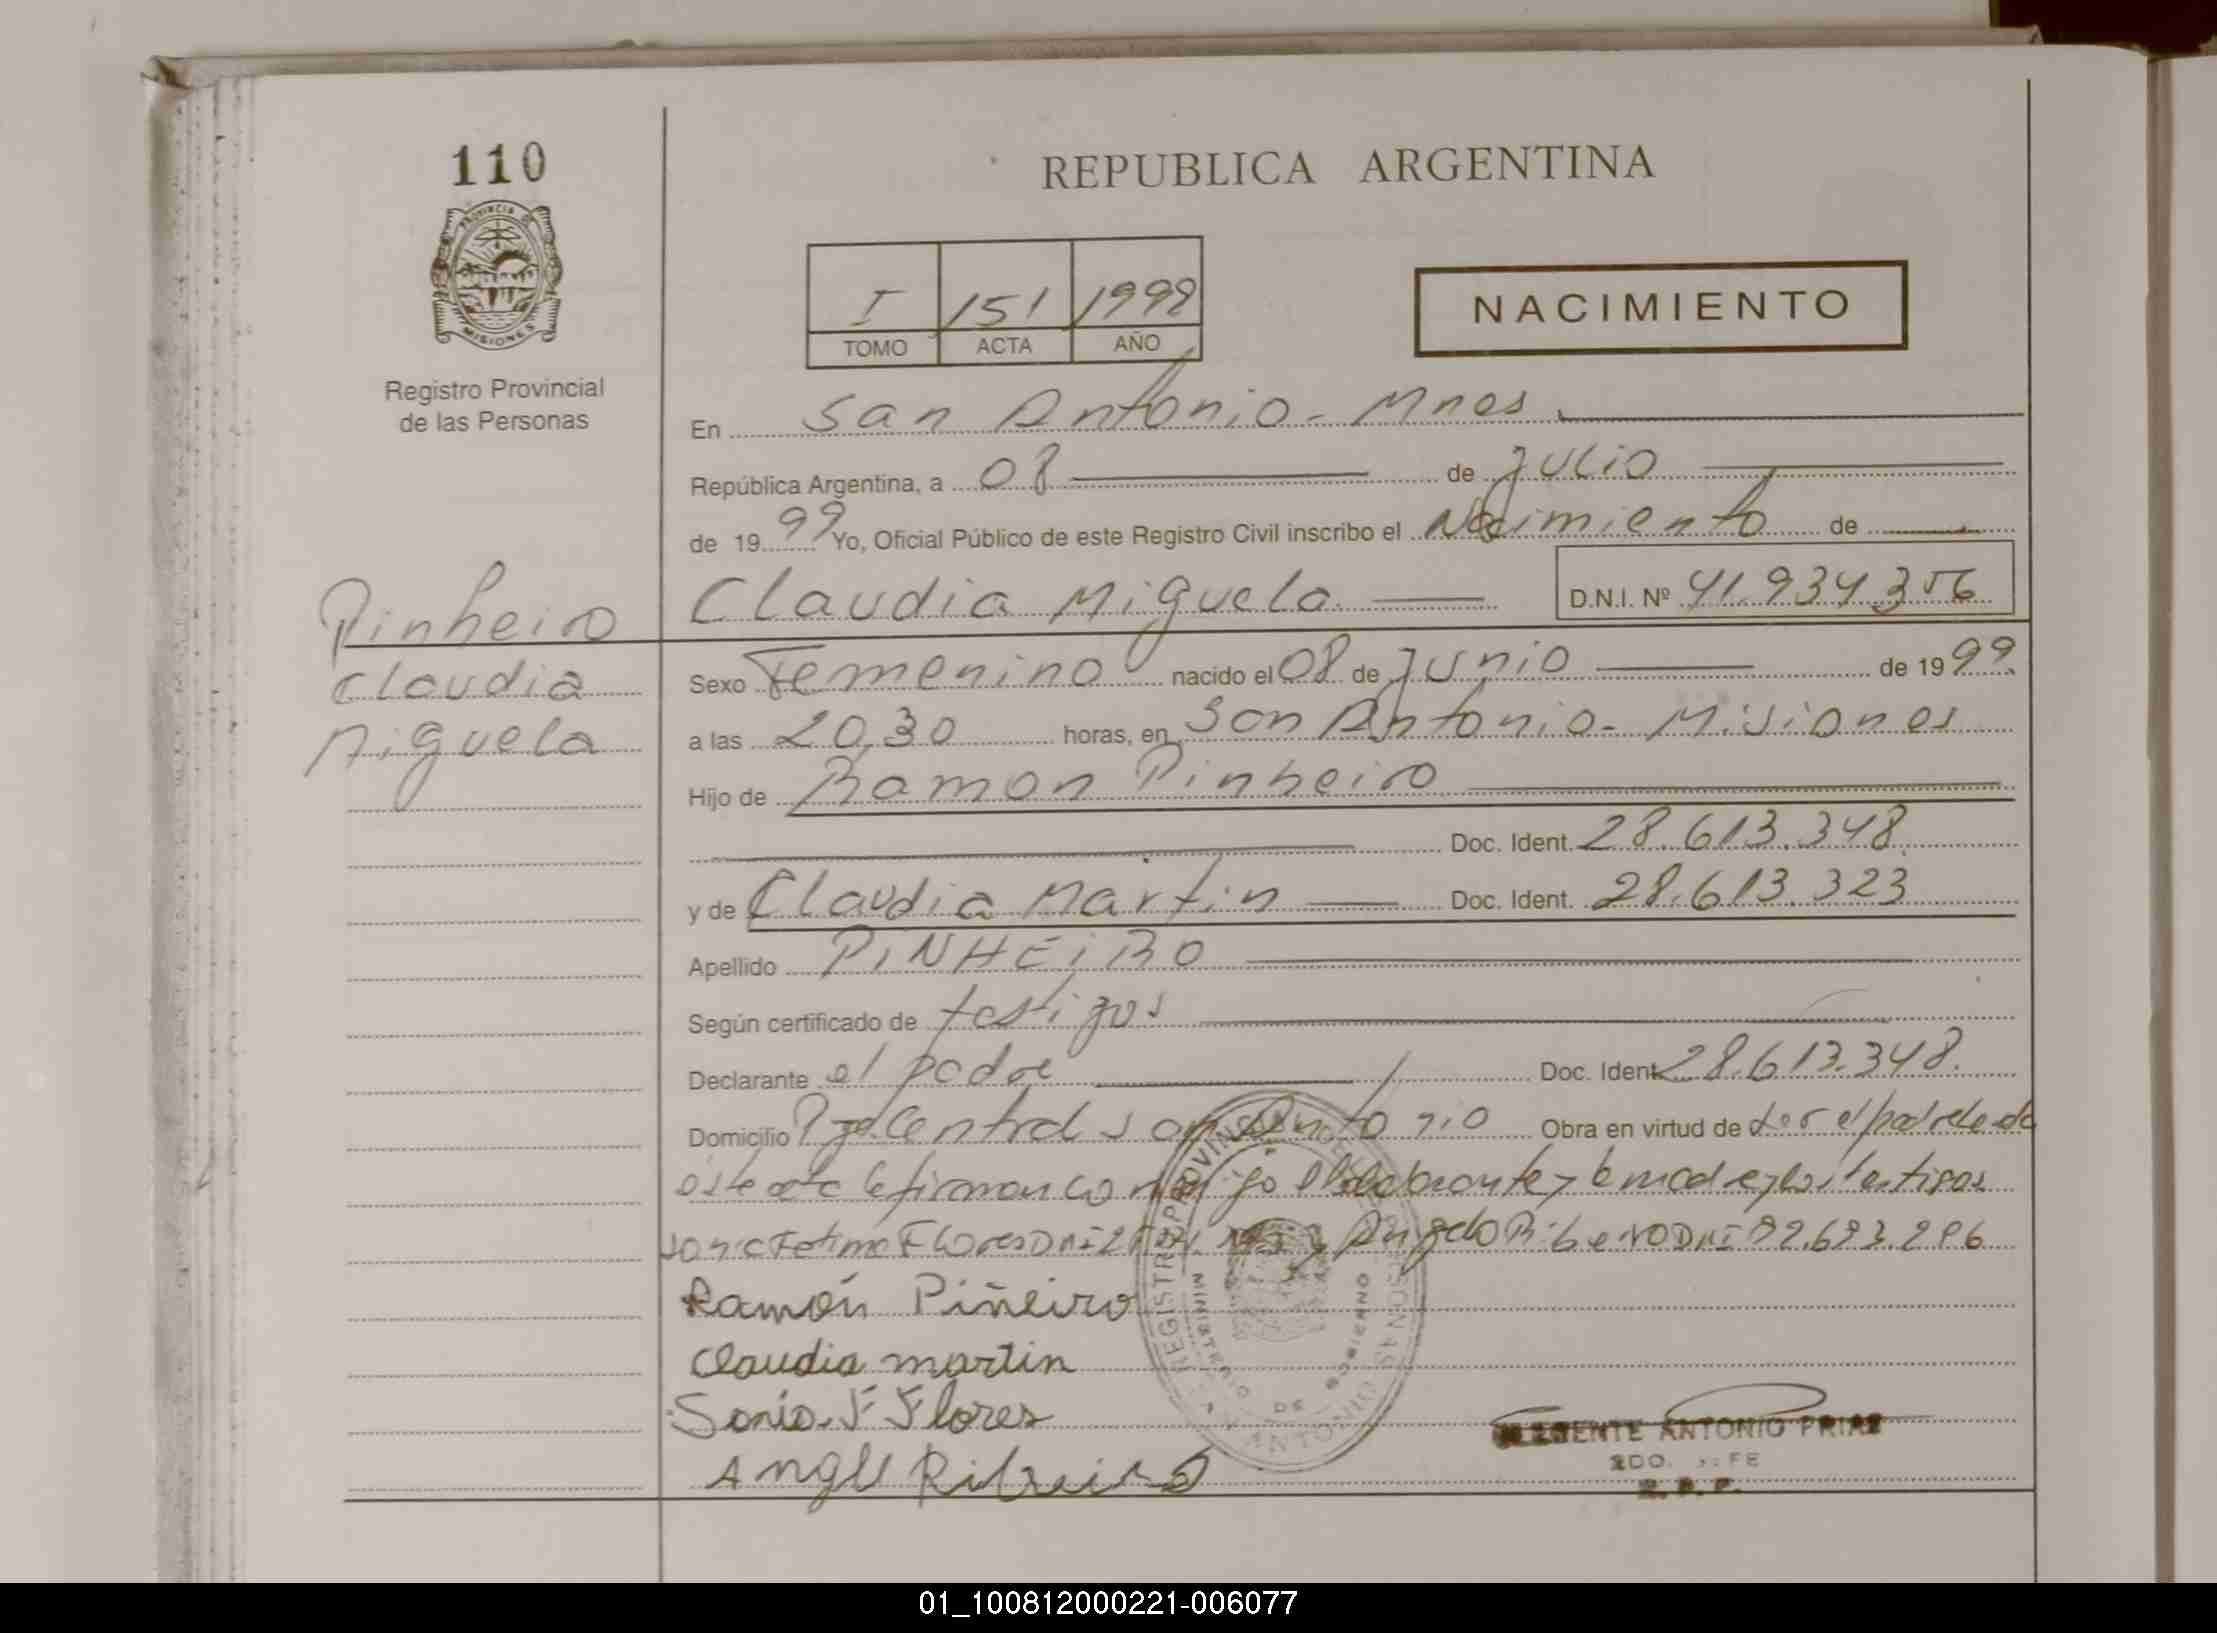 110
REPUBLICA ARGENTINA
PROVINCIA DE
MISIONES
Registro Provincial
de las Personas
I 151 1999
TOMO ACTA AÑO
NACIMIENTO
En San Antonio - Mnes
República Argentina, a 08 de Julio
de 1999 Yo, Oficial Público de este Registro Civil inscribo el Nacimiento de
Claudia Miguela D.N.I. Nº 41.934.356
Pinheiro
Claudia
Miguela
Sexo Femenino nacido el 08 de Junio de 1999
a las 20,30 horas, en San Antonio - Misiones
Hijo de Ramon Pinheiro
Doc. Ident. 28.613.348
y de Claudia Martin Doc. Ident. 28.613.323
Apellido PINHEIRO
Según certificado de testigos
Declarante el padre Doc. Ident. 28.613.348.
Domicilio Pje Central San Antonio Obra en virtud de ser el padre
firman y los testigos
Fatima Flores DNI y Angelo Ribero DNI
Ramón Piñeiro
Claudia martin
Sonia F Flores
Angel Ribeiro
ANTONIO PRIAS
01_100812000221-006077